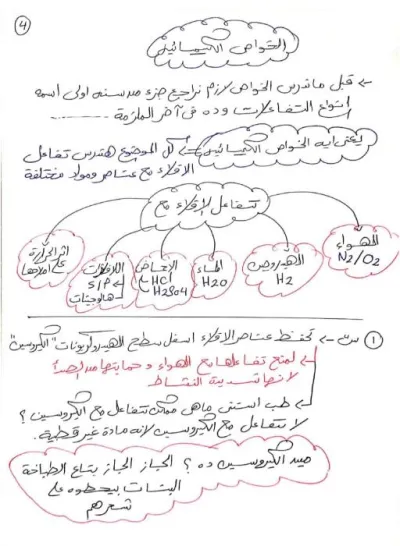 ٤
الخواص الكيميائية
← قبل ما ندرس الخواص لازم نراجع جزء من سنه اولى اسمه
انواع التفاعلات وده فى آخر الملزمة
يعنى ايه الخواص الكيميائية ← كل الموضوع هندرس تفاعل
الاقلاء مع عناصر ومواد مختلفة
تتفاعل الاقلاء مع
الهواء N2/O2
الهيدروجين H2
الماء H2O
الاحماض HCl H2SO4
اللافلزات S/P هالوجينات
اثر الحرارة على املاحها
① س: تحفظ عناصر الاقلاء اسفل سطح الهيدروكربونات "الكيروسين"
← لمنع تفاعلها مع الهواء وحمايتها من الصدأ
لانها شديدة النشاط
← طب استنى ماهى ممكن تتفاعل مع الكيروسين ؟
لا تتفاعل مع الكيروسين لانه مادة غير قطبية.
مين الكيروسين ده ؟ الجاز الجاز بتاع الطباخة
البنات بيحطوه على
شعرهم